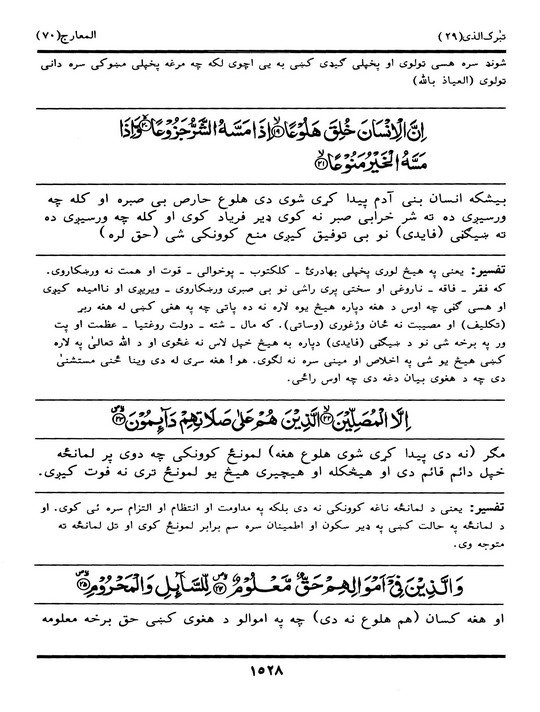 تبٰرک الذی (۲۹)
المعارج (۷۰)
شوند سره هسی تولوی او پخپلی ګیډی کښی به یی اچوی لکه چه مرغه پخپلی مښوکی سره دانی
تولوی (العیاذ بالله)
اِنَّ الْاِنْسَانَ خُلِقَ هَلُوْعًا ۙ﴿۱۹﴾ اِذَا مَسَّهُ الشَّرُّ جَزُوْعًا ۙ﴿۲۰﴾ وَّاِذَا
مَسَّهُ الْخَیْرُ مَنُوْعًا ۙ﴿۲۱﴾
بیشکه انسان بنی آدم پیدا کړی شوی دی هلوع حارص بی صبره او کله چه
ورسیږی ده ته شر خرابی صبر نه کوی ډیر فریاد کوی او کله چه ورسیږی ده
ته ښیګڼی (فایدی) نو بی توفیق کیږی منع کوونکی شی (حق لره)
تفسیر: یعنی په هیڅ لوری پخپلی بهادرئ - کلکتوب - پوخوالی - قوت او همت نه ورښکاروی.
که فقر - فاقه - ناروغی او سختی پری راشی نو بی صبری ورښکاروی - ویریږی او ناامیده کیږی
او هسی ګڼی چه اوس د هغه دپاره هیڅ یوه لاره نه ده پاتی چه په هغی کښی له هغه ربړ
(تکلیف) او مصیبت نه ځان وژغوری (وساتی). که مال - شته - دولت روغتیا - عظمت او پت
ور په برخه شی نو د ښیګڼی (فایدی) دپاره به هیڅ خپل لاس نه غځوی او د الله تعالیٰ په لاره
کښی هیڅ یو شی په اخلاص او مینی سره نه لګوی. هو! هغه سړی له دی وینا ځنی مستثنیٰ
دی چه د هغوی بیان دغه دی چه اوس راځی.
اِلَّا الْمُصَلِّیْنَ ۙ﴿۲۲﴾ الَّذِیْنَ هُمْ عَلٰی صَلَاتِهِمْ دَآئِمُوْنَ ۪ۙ﴿۲۳﴾
مګر (نه دی پیدا کړی شوی هلوع هغه) لمونځ کوونکی چه دوی پر لمانځه
خپل دائم قائم دی او هیڅکله او هیچیری هیڅ یو لمونځ تری نه فوت کیږی.
تفسیر: یعنی د لمانځه ناغه کوونکی نه دی بلکه په مداومت او انتظام او التزام سره ئی کوی. او
د لمانځه په حالت کښی په ډیر سکون او اطمینان سره سم برابر لمونځ کوی او تل لمانځه ته
متوجه وی.
وَالَّذِیْنَ فِیْۤ اَمْوَالِهِمْ حَقٌّ مَّعْلُوْمٌ ۪ۙ﴿۲۴﴾ لِّلسَّآئِلِ وَالْمَحْرُوْمِ ۪ۙ﴿۲۵﴾
او هغه کسان (هم هلوع نه دی) چه په اموالو د هغوی کښی حق برخه معلومه
۱۵۲۸